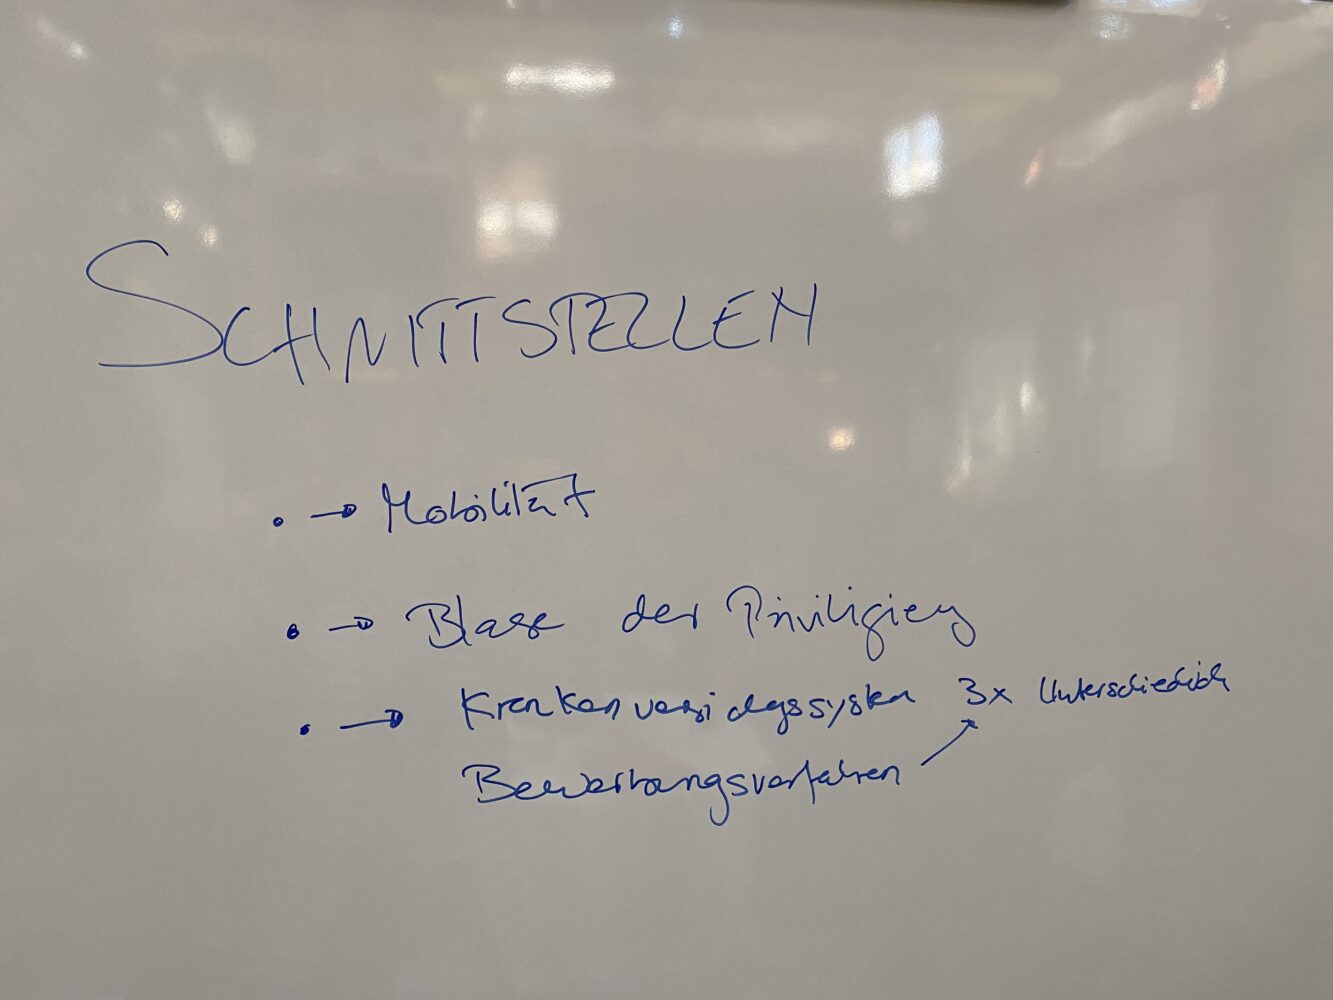 SCHNITTSTELLEN
• → Mobilität
• → Blase der Priviligiery
• → Krankenversichgssystem 3x Unterschiedlich
Bewerbungsverfahren